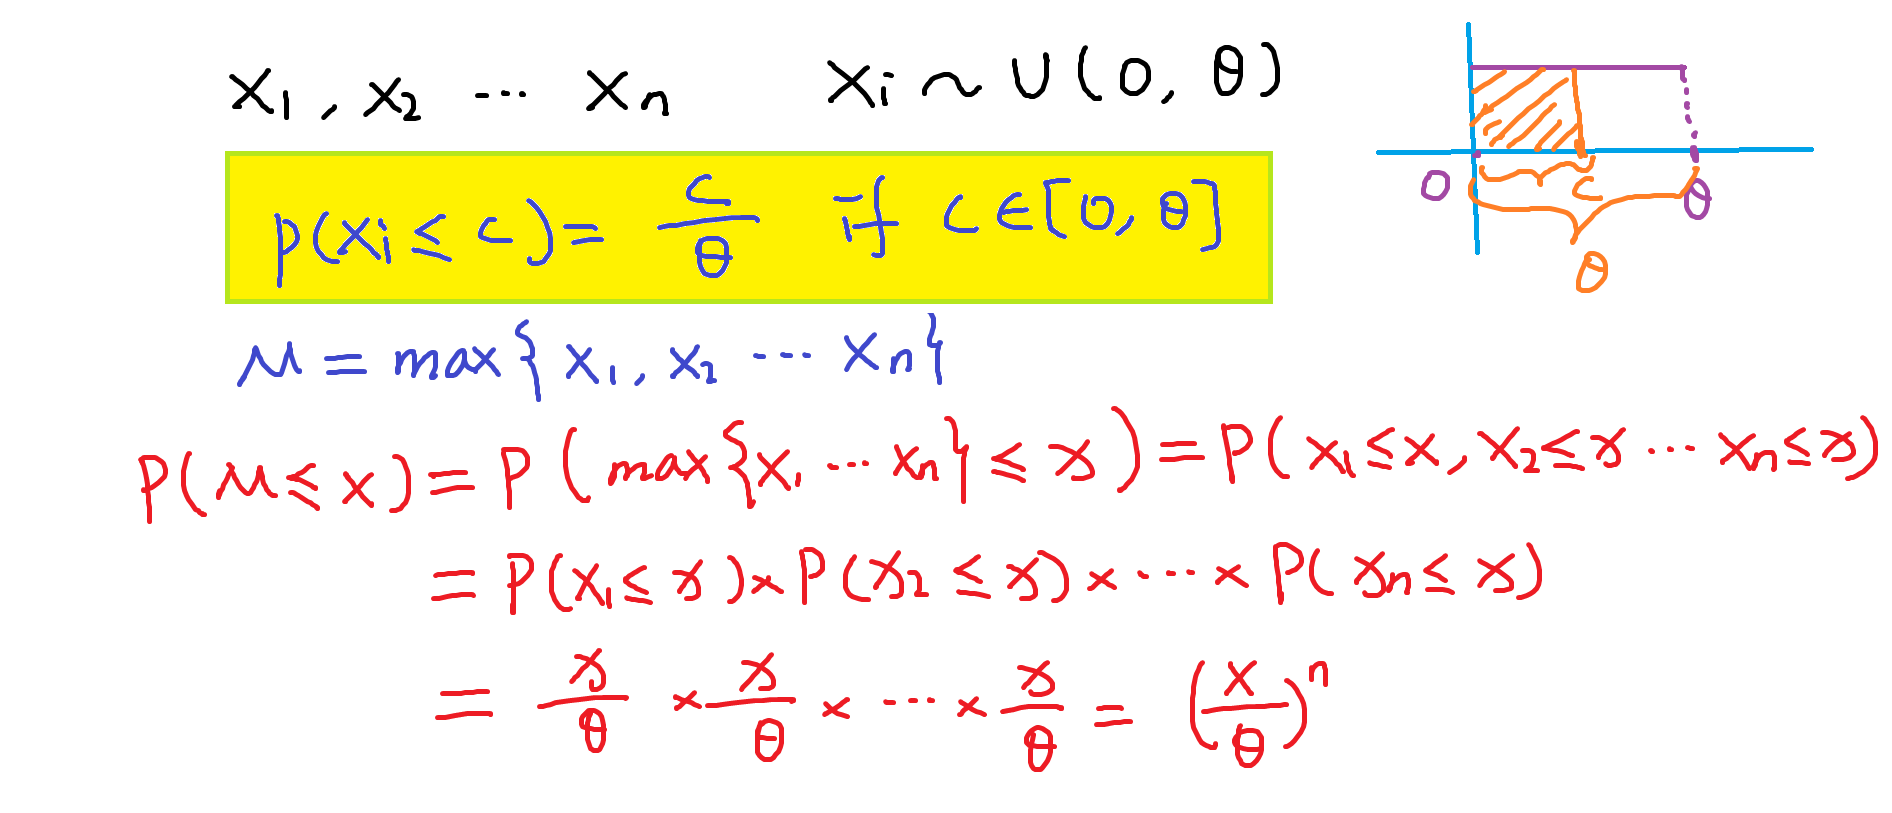 X₁, X₂ ... Xₙ   Xᵢ ~ U(0, θ)
P(Xᵢ ≤ c) = c/θ if c ∈ [0, θ]
0 c θ
θ
M = max{X₁, X₂ ... Xₙ}
P(M ≤ x) = P(max{X₁ ... Xₙ} ≤ x) = P(X₁ ≤ x, X₂ ≤ x ... Xₙ ≤ x)
= P(X₁ ≤ x) × P(X₂ ≤ x) × ... × P(Xₙ ≤ x)
= x/θ × x/θ × ... × x/θ = (x/θ)ⁿ